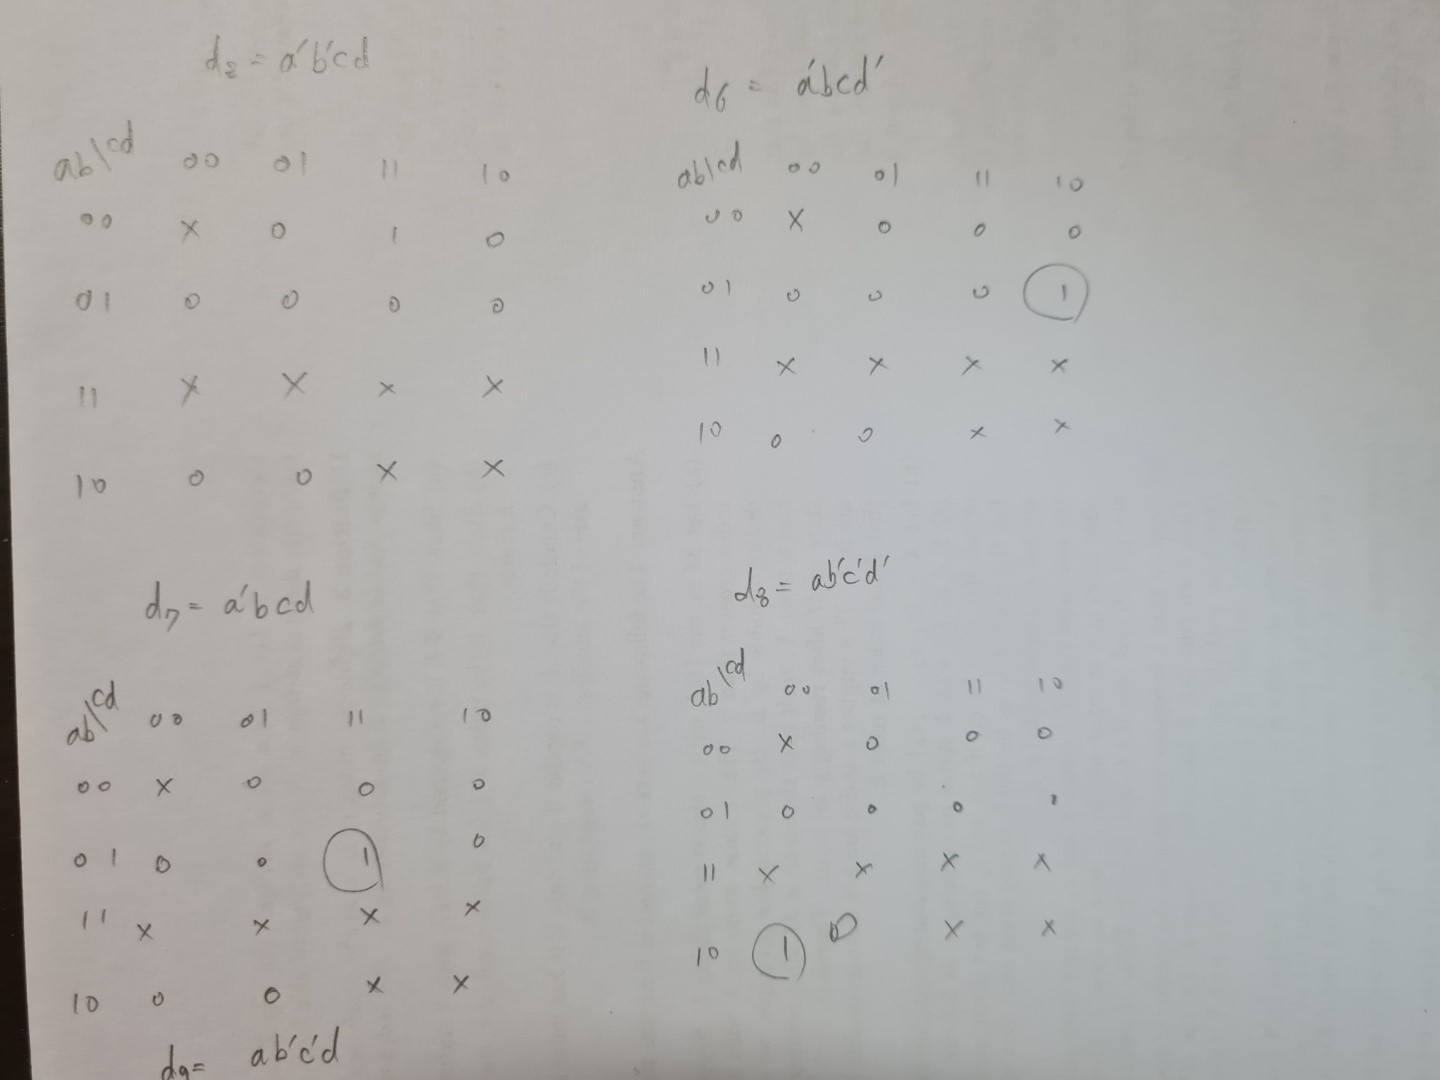 d₂ = a'b'cd
ab\cd 00 01 11 10
00 x 0 1 0
01 0 0 0 0
11 x x x x
10 0 0 x x
d6 = a'bcd'
ab\cd 00 01 11 10
00 x 0 0 0
01 0 0 0 1
11 x x x x
10 0 0 x x
d₇ = a'bcd
ab\cd 00 01 11 10
00 x 0 0 0
01 0 0 1 0
11 x x x x
10 0 0 x x
d8 = ab'c'd'
ab\cd 00 01 11 10
00 x 0 0 0
01 0 0 0
11 x x x x
10 1 0 x x
d9= ab'c'd